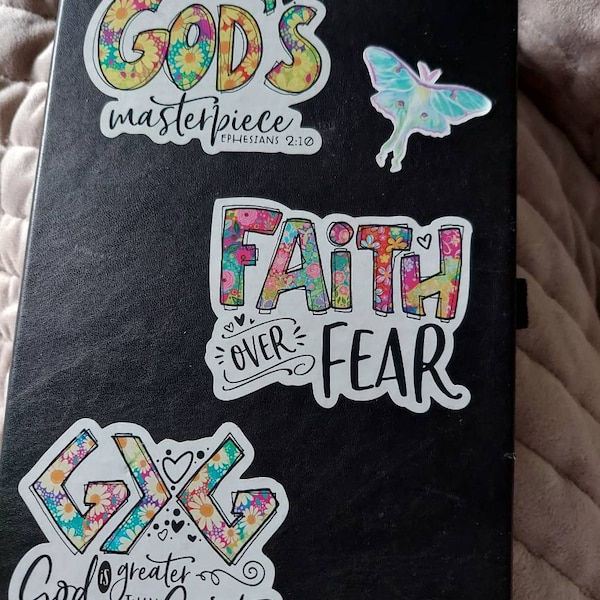 GOD'S
masterpiece
EPHESIANS 2:10
FAiTH
OVER FEAR
G>G
God is greater